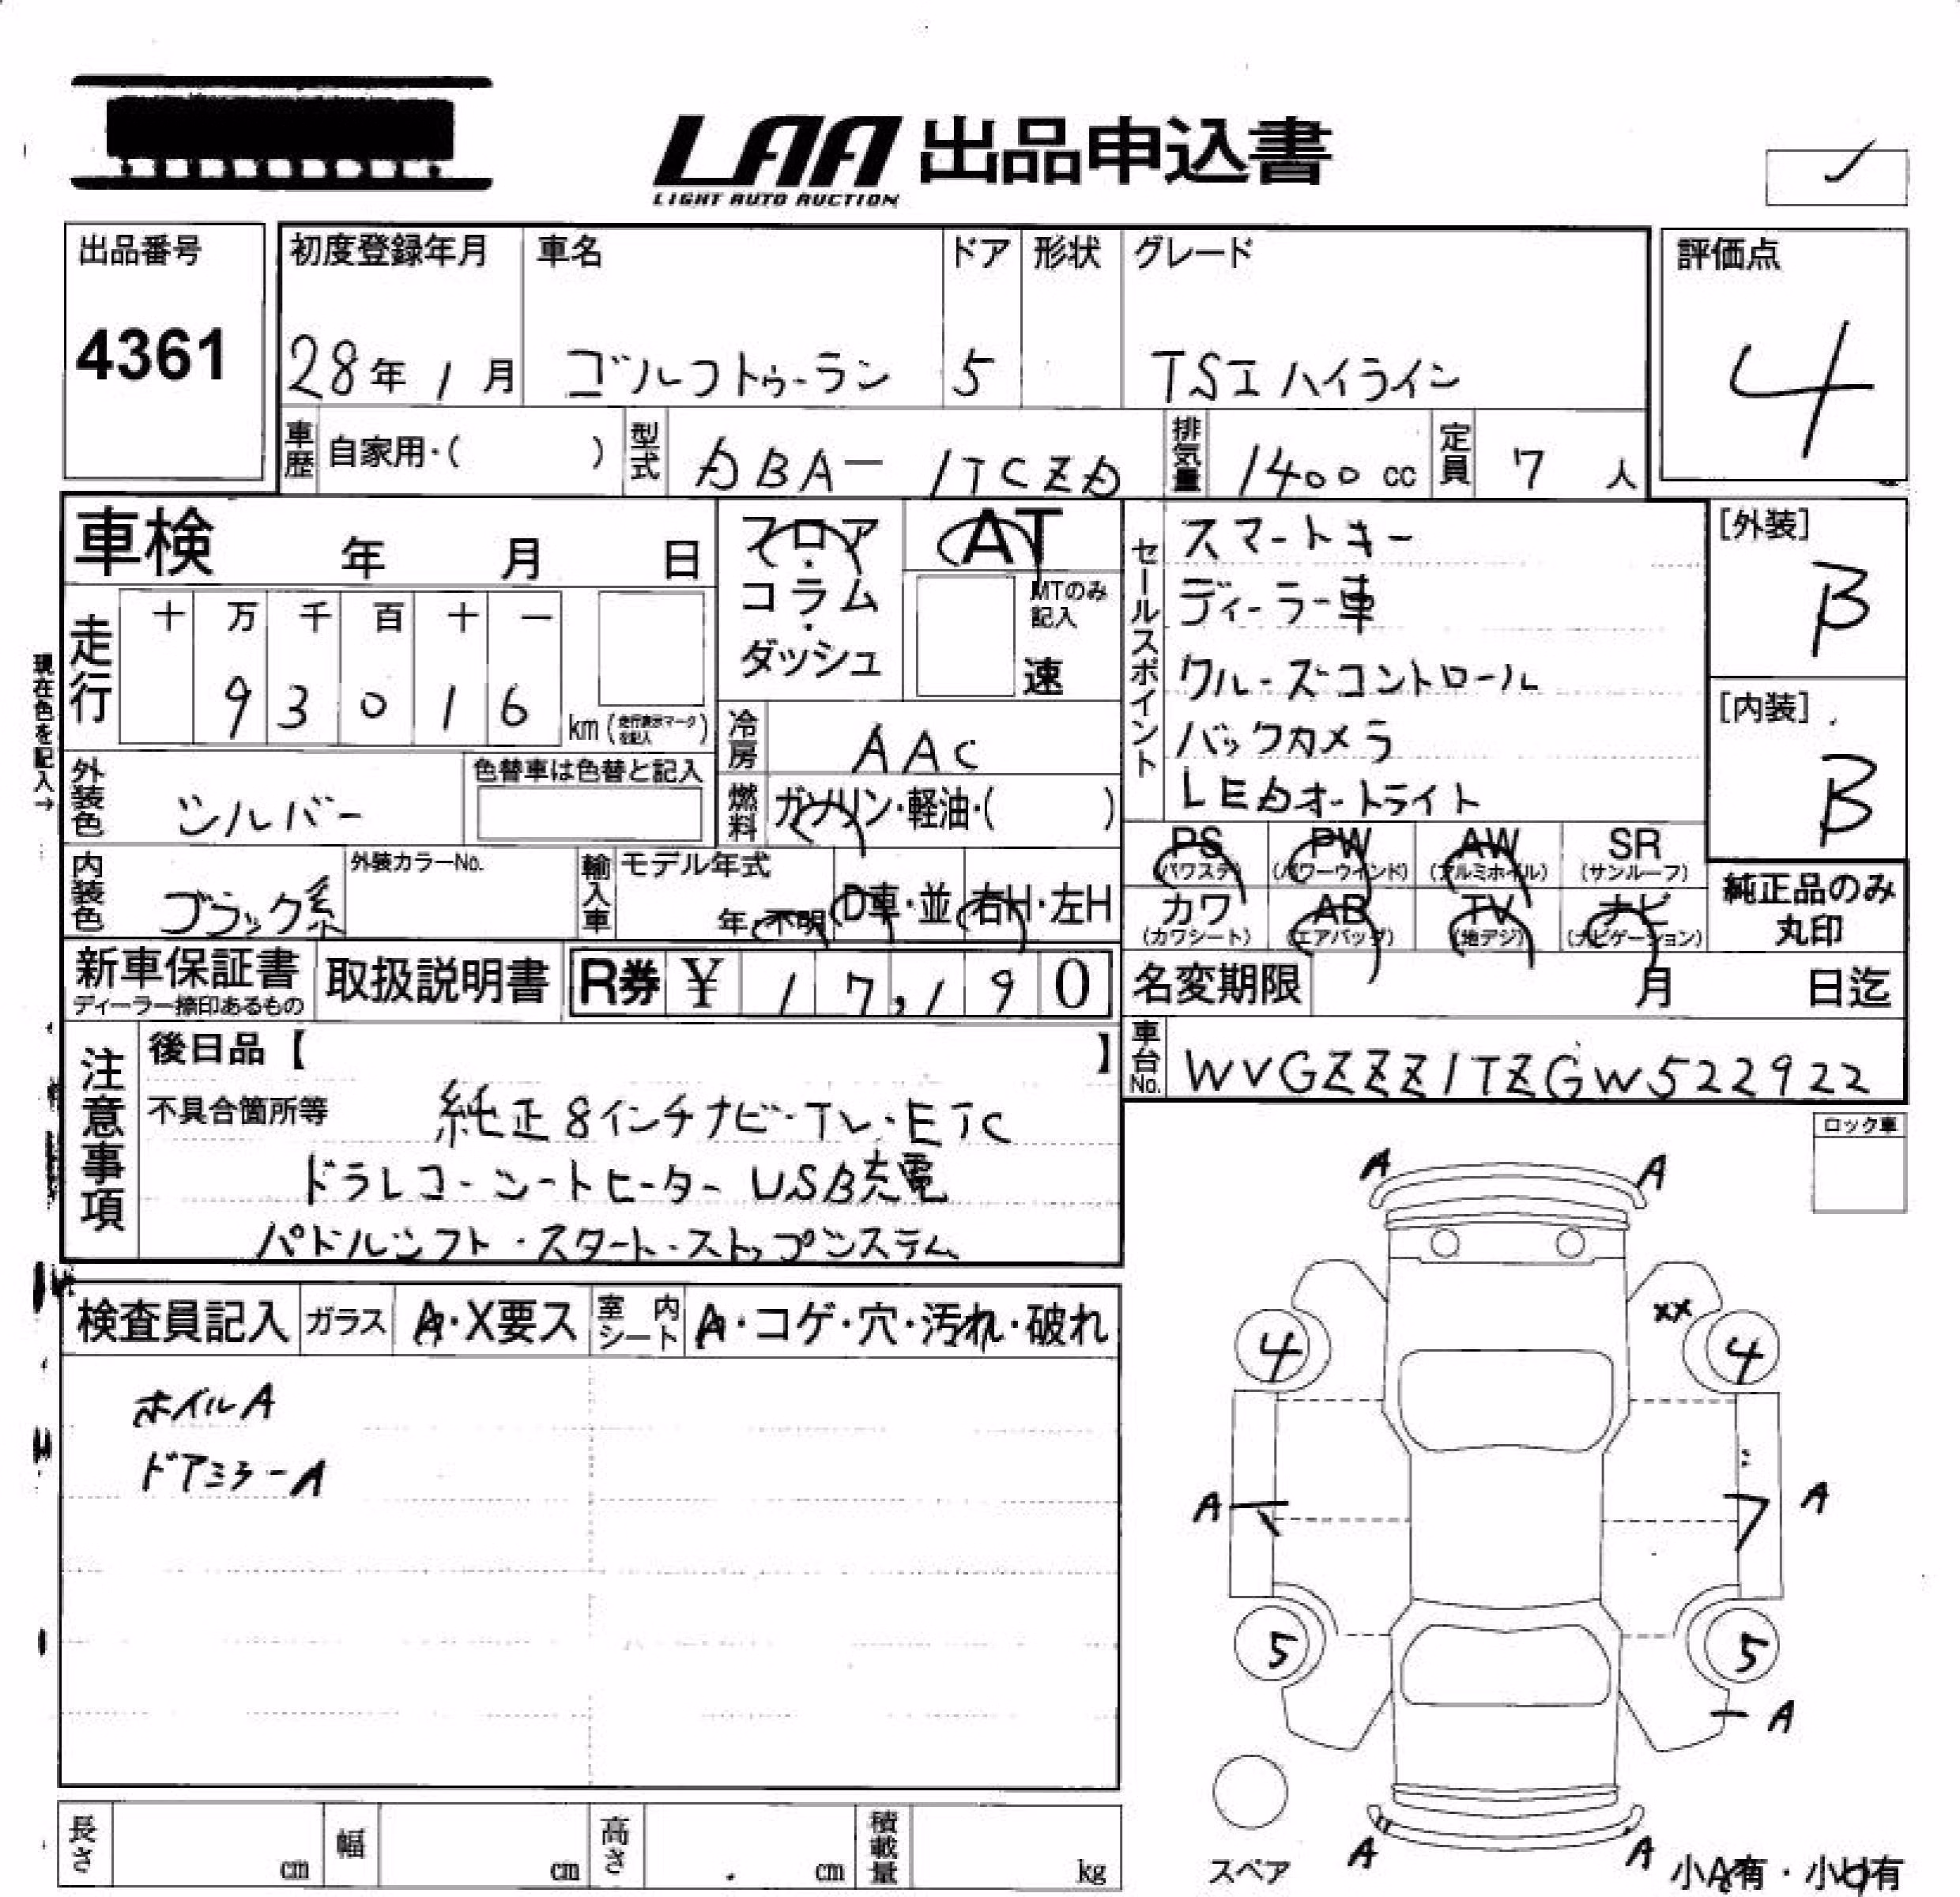 LAA 出品申込書
LIGHT AUTO AUCTION
出品番号
4361
初度登録年月 車名 ドア 形状 グレード
28年 1月 ゴルフトゥーラン 5 TSI ハイライン
評価点
4
車歴 自家用・( ) 型式 DBA-1TCZD 排気量 1400 cc 定員 7 人
車検 年 月 日
フロア・コラム・ダッシュ
AT
MTのみ記入
速
セールスポイント
スマートキー
ディーラー車
クルーズコントロール
バックカメラ
LEDオートライト
[外装]
B
[内装]
B
現在色を記入→
走行 十 万 千 百 十 一
9 3 0 1 6 km (走行表示マークを記入)
冷房 AAC
外装色 シルバー 色替車は色替と記入
燃料 ガソリン・軽油・( )
PS (パワステ) PW (パワーウインド) AW (アルミホイル) SR (サンルーフ)
カワ (カワシート) AB (エアバッグ) TV (地デジ) ナビ (ナビゲーション)
純正品のみ丸印
内装色 ブラック系 外装カラーNo. 輸入車 モデル年式 年・不明 D車・並 右H・左H
新車保証書 ディーラー捺印あるもの 取扱説明書 R券 ¥ 17,190
名変期限 月 日迄
車台No. WVGZZZ1TZGW522922
注意事項
後日品【 】
不具合箇所等 純正8インチナビ・TV・ETC
ドラレコ・シートヒーター USB充電
パドルシフト・スタート・ストップシステム
ロック車
検査員記入 ガラス A・X要ス 室内シート A・コゲ・穴・汚れ・破れ
ホイルA
ドアミラーA
A A
XX
4 4
A A
5 5
A
A A
スペア
小A有・小U有
長さ cm 幅 cm 高さ cm 積載量 kg